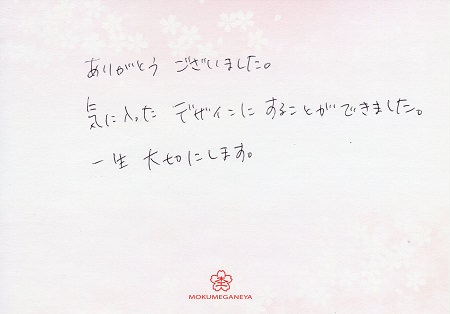 ありがとう ございました。
気に入った デザインに することができました。
一生 大切にします。
MOKUMEGANEYA